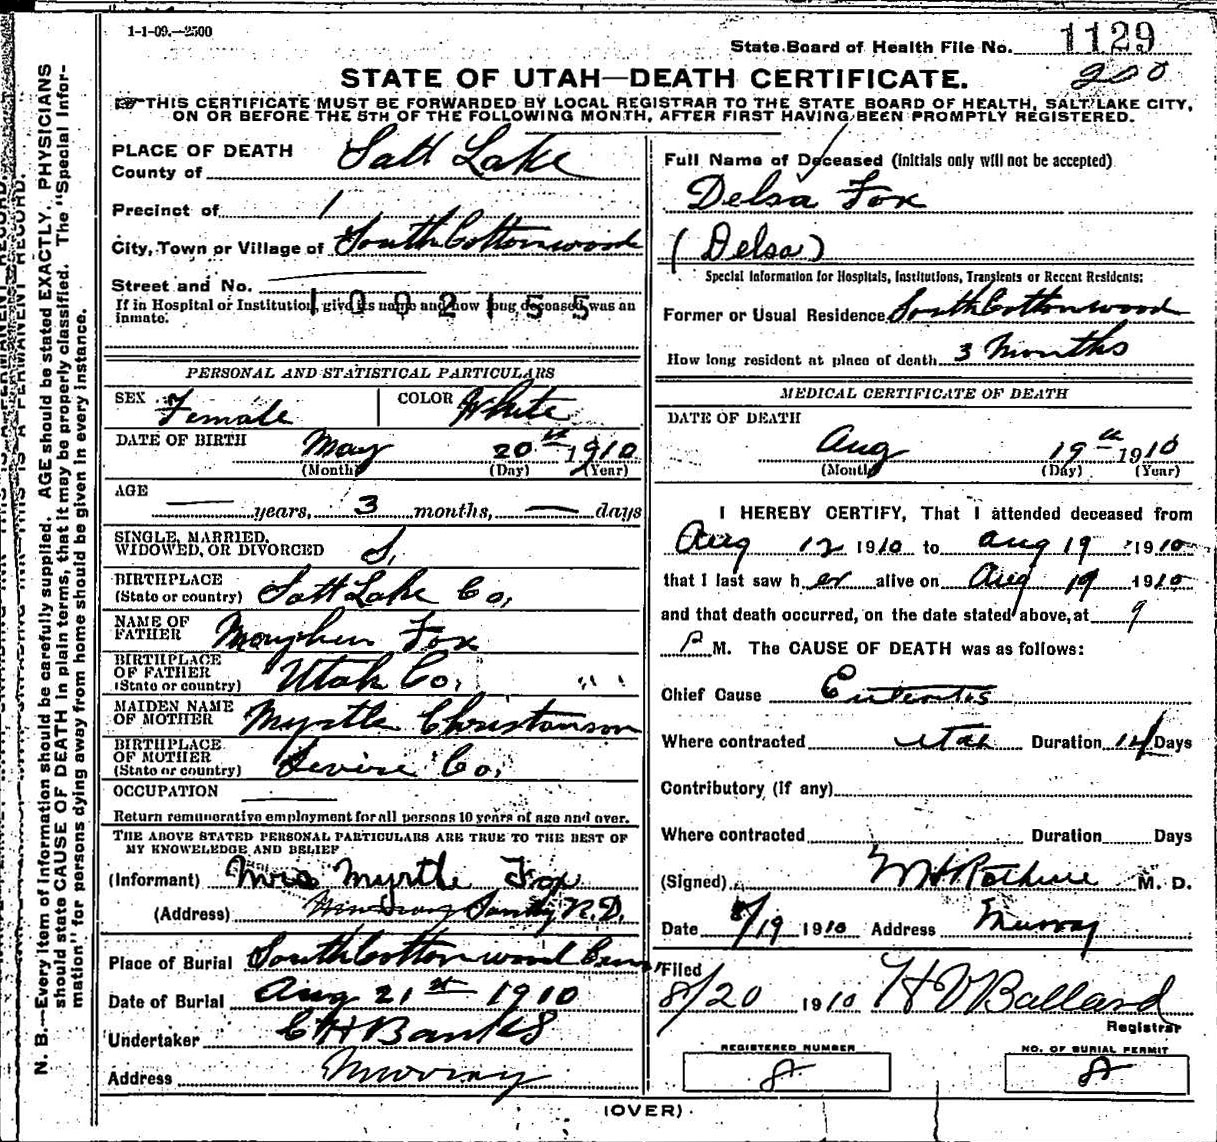 1-1-09.—2500
State Board of Health File No. 1129
200
STATE OF UTAH—DEATH CERTIFICATE.
THIS CERTIFICATE MUST BE FORWARDED BY LOCAL REGISTRAR TO THE STATE BOARD OF HEALTH, SALT LAKE CITY,
ON OR BEFORE THE 5TH OF THE FOLLOWING MONTH, AFTER FIRST HAVING BEEN PROMPTLY REGISTERED.
N. B.—Every item of information should be carefully supplied. AGE should be stated EXACTLY. PHYSICIANS
should state CAUSE OF DEATH in plain terms, that it may be properly classified. The "Special Infor-
mation" for persons dying away from home should be given in every instance.
PLACE OF DEATH
County of Salt Lake
Precinct of 1
City, Town or Village of South Cottonwood
Street and No.
If in Hospital or Institution, give its name and how long deceased was an
inmate.
1002155
PERSONAL AND STATISTICAL PARTICULARS
SEX Female COLOR White
DATE OF BIRTH May 20th 1910
(Month) (Day) (Year)
AGE
— years, 3 months, — days
SINGLE, MARRIED,
WIDOWED, OR DIVORCED S.
BIRTHPLACE
(State or country) Salt Lake Co.
NAME OF
FATHER Fox
BIRTHPLACE
OF FATHER
(State or country) Utah Co.
MAIDEN NAME
OF MOTHER Myrtle Christanson
BIRTHPLACE
OF MOTHER
(State or country) Sevire Co.
OCCUPATION
Return remunerative employment for all persons 10 years of age and over.
THE ABOVE STATED PERSONAL PARTICULARS ARE TRUE TO THE BEST OF
MY KNOWLEDGE AND BELIEF
(Informant) Mrs Myrtle Fox
(Address) Sandy R.D.
Place of Burial South Cottonwood Cem
Date of Burial Aug 21st 1910
Undertaker C H Banks
Address Murray
Full Name of Deceased (initials only will not be accepted)
Delsa Fox
(Delsa)
Special Information for Hospitals, Institutions, Transients or Recent Residents:
Former or Usual Residence South Cottonwood
How long resident at place of death 3 Months
MEDICAL CERTIFICATE OF DEATH
DATE OF DEATH
Aug 19th 1910
(Month) (Day) (Year)
I HEREBY CERTIFY, That I attended deceased from
Aug 12 1910 to Aug 19 1910
that I last saw her alive on Aug 19 1910
and that death occurred, on the date stated above, at 9
P M. The CAUSE OF DEATH was as follows:
Chief Cause Enteritis
Where contracted Utah Duration 14 Days
Contributory (if any)
Where contracted Duration Days
(Signed) M. D.
Date 8/19 1910 Address Murray
Filed
8/20 1910 H V Ballard
Registrar
REGISTERED NUMBER
8
NO. OF BURIAL PERMIT
8
(OVER)